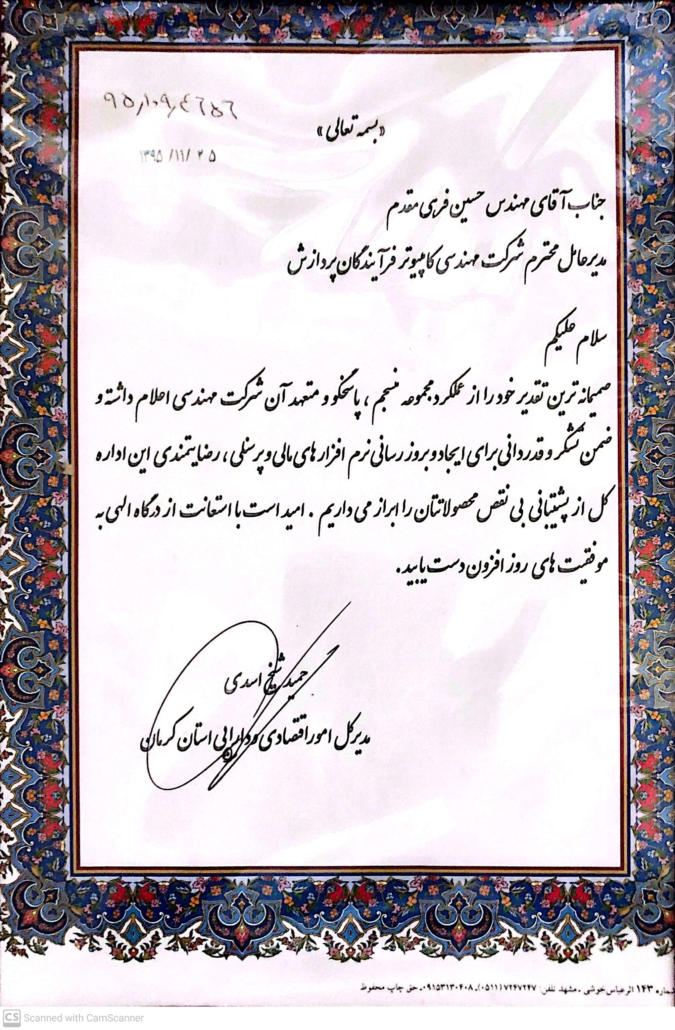 ۹۵٫۱۰۹٫۴۶۵۶
«بسمه تعالی»
۱۳۹۵ /۱۱/ ۲۵
جناب آقای مهندس حسین فربی مقدم
مدیرعامل محترم شرکت مهندسی کامپیوتر فرآیندگان پردازش
سلام علیکم
صمیمانه ترین تقدیر خود را از عملکرد مجموعه منسجم ، پاسخگو و متعهد آن شرکت مهندسی اعلام داشته و
ضمن تشکر و قدردانی برای ایجاد و بروز رسانی نرم افزار های مالی و پرسنلی ، رضایتمندی این اداره
کل از پشتیبانی بی نقص محصولاتتان را ابراز می داریم . امید است با استعانت از درگاه الهی به
موفقیت های روز افزون دست یابید .
حمید شیخ اسدی
مدیرکل امور اقتصادی و دارایی استان کرمان
شماره ۱۴۳ اثر عباس خوشی ـ مشهد تلفن: ۷۲۴۷۲۴۷ (۰۵۱۱)ـ ۰۹۱۵۳۱۳۰۴۰۸ـ حق چاپ محفوظ
CS Scanned with CamScanner